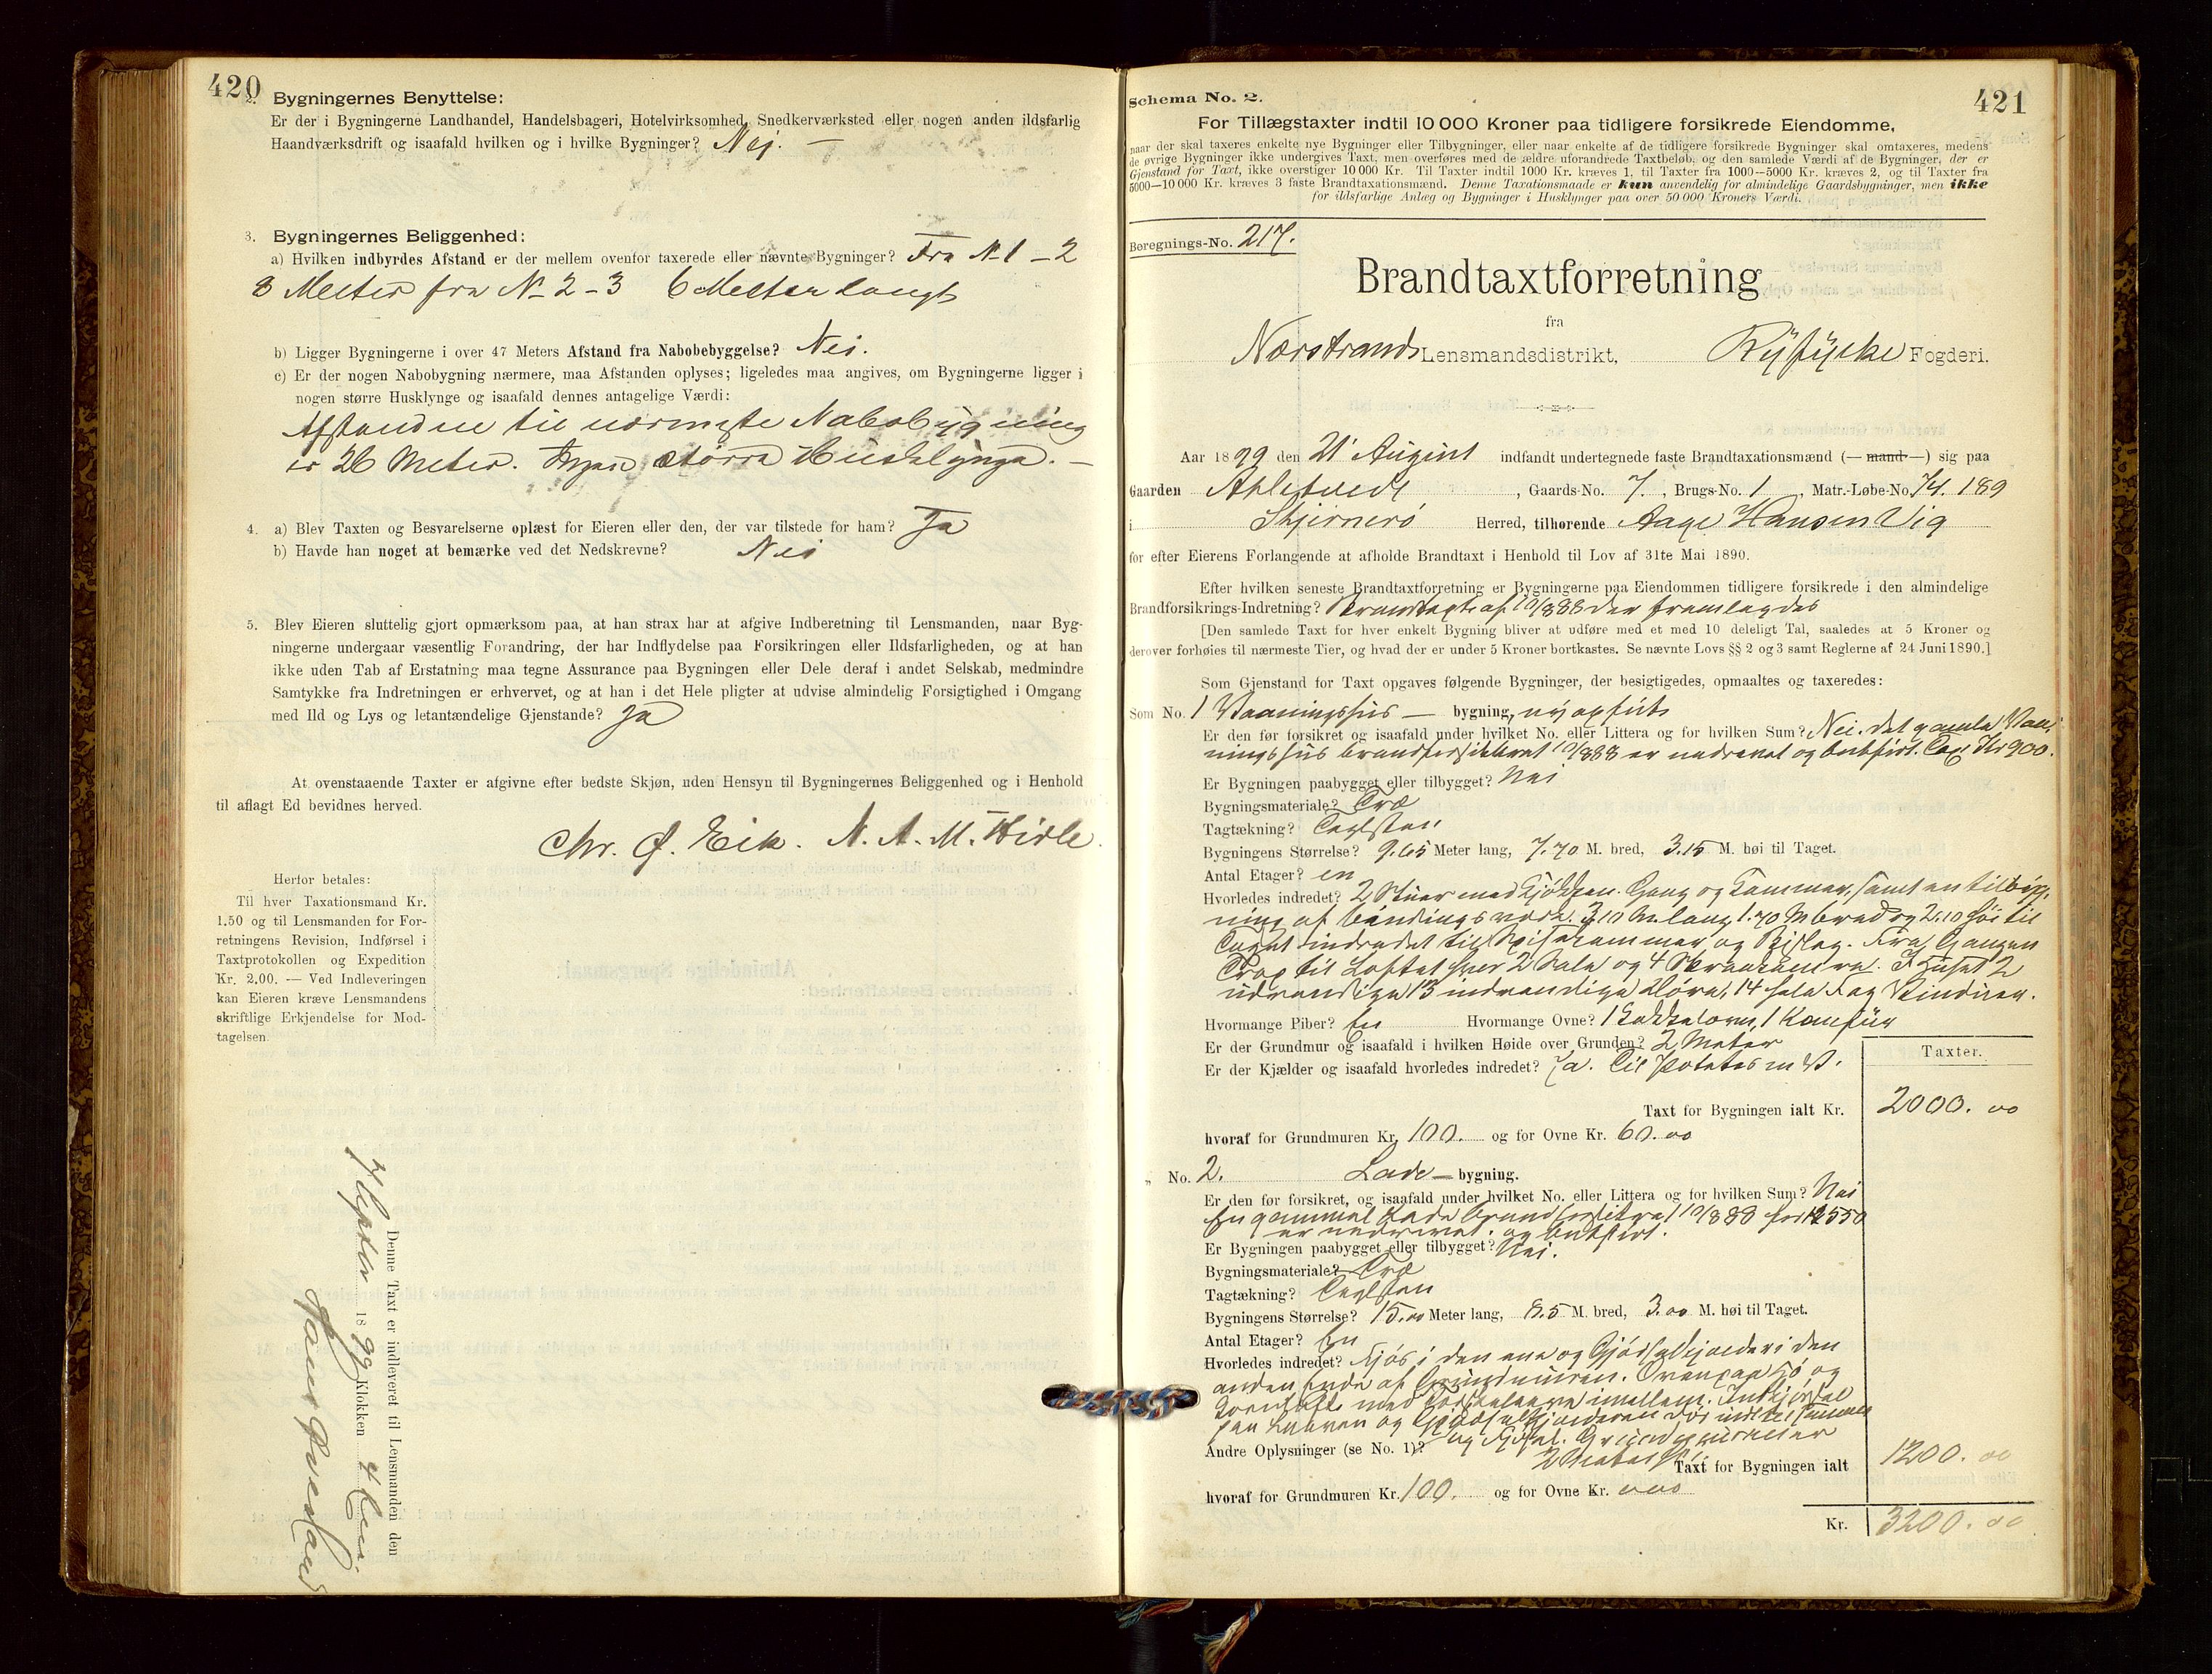 420
2. Bygningernes Benyttelse:
Er der i Bygningerne Landhandel, Handelsbageri, Hotelvirksomhed, Snedkerværksted eller nogen anden ildsfarlig
Haandværksdrift og isaafald hvilken og i hvilke Bygninger? Nej. —
3. Bygningernes Beliggenhed:
a) Hvilken indbyrdes Afstand er der mellem ovenfor taxerede eller nævnte Bygninger? Fra N 1 – 2
8 Meter fra N– 2 – 3 6 Meter langt
b) Ligger Bygningerne i over 47 Meters Afstand fra Nabobebyggelse? Nei.
c) Er der nogen Nabobygning nærmere, maa Afstanden oplyses; ligeledes maa angives, om Bygningerne ligger i
nogen større Husklynge og isaafald dennes antagelige Værdi:
Afstanden til nærmeste Nabobygning
er 26 Meter. Ingen større Husklynge. —
4. a) Blev Taxten og Besvarelserne oplæst for Eieren eller den, der var tilstede for ham? Ja
b) Havde han noget at bemærke ved det Nedskrevne? Nei
5. Blev Eieren sluttelig gjort opmærksom paa, at han strax har at afgive Indberetning til Lensmanden, naar Byg-
ningerne undergaar væsentlig Forandring, der har Indflydelse paa Forsikringen eller Ildsfarligheden, og at han
ikke uden Tab af Erstatning maa tegne Assurance paa Bygningen eller Dele deraf i andet Selskab, medmindre
Samtykke fra Indretningen er erhvervet, og at han i det Hele pligter at udvise almindelig Forsigtighed i Omgang
med Ild og Lys og letantændelige Gjenstande? Ja
At ovenstaaende Taxter er afgivne efter bedste Skjøn, uden Hensyn til Bygningernes Beliggenhed og i Henhold
til aflagt Ed bevidnes herved.
Chr. Ø. Eik. N. A. M. Hidle.
Herfor betales:
Til hver Taxationsmand Kr.
1.50 og til Lensmanden for For-
retningens Revision, Indførsel i
Taxtprotokollen og Expedition
Kr. 2,00. — Ved Indleveringen
kan Eieren kræve Lensmandens
skriftlige Erkjendelse for Mod-
tagelsen.
Denne Taxt er indleveret til Lensmanden den
7 Septbr 1899 Klokken 4
421
Schema No. 2.
For Tillægstaxter indtil 10 000 Kroner paa tidligere forsikrede Eiendomme,
naar der skal taxeres enkelte nye Bygninger eller Tilbygninger, eller naar enkelte af de tidligere forsikrede Bygninger skal omtaxeres, medens
de øvrige Bygninger ikke undergives Taxt, men overføres med de ældre uforandrede Taxtbeløb, og den samlede Værdi af de Bygninger, der er
Gjenstand for Taxt, ikke overstiger 10 000 Kr. Til Taxter indtil 1000 Kr. kræves 1, til Taxter fra 1000—5000 Kr. kræves 2, og til Taxter fra
5000—10 000 Kr. kræves 3 faste Brandtaxationsmænd. Denne Taxationsmaade er kun anvendelig for almindelige Gaardsbygninger, men ikke
for ildsfarlige Anlæg og Bygninger i Husklynger paa over 50 000 Kroners Værdi.
Beregnings-No. 217.
Brandtaxtforretning
fra
Nærstrands Lensmandsdistrikt, Ryfylke Fogderi.
Aar 1899 den 21 August indfandt undertegnede faste Brandtaxationsmænd (— mand —) sig paa
Gaarden , Gaards-No. 7. , Brugs-No. 1 , Matr.-Løbe-No. 74. 189
i Skjernerø Herred, tilhørende Aage Hansen Vig
for efter Eierens Forlangende at afholde Brandtaxt i Henhold til Lov af 31te Mai 1890.
Efter hvilken seneste Brandtaxtforretning er Bygningerne paa Eiendommen tidligere forsikrede i den almindelige
Brandforsikrings-Indretning? Brandtaxt af 10/8 88 der fremlagdes
[Den samlede Taxt for hver enkelt Bygning bliver at udføre med et med 10 deleligt Tal, saaledes at 5 Kroner og
derover forhøies til nærmeste Tier, og hvad der er under 5 Kroner bortkastes. Se nævnte Lovs §§ 2 og 3 samt Reglerne af 24 Juni 1890.]
Som Gjenstand for Taxt opgaves følgende Bygninger, der besigtigedes, opmaaltes og taxeredes:
Som No. 1 Vaaningshus — bygning, ny opført
Er den før forsikret og isaafald under hvilket No. eller Littera og for hvilken Sum? Nei. det gamle Vaa-
ningshus brandforsikkret 10/8 88 er nedrevet og bortført. Taxt Kr 900.
Er Bygningen paabygget eller tilbygget? Nei
Bygningsmateriale? Træ
Tagtækning? Taglsten
Bygningens Størrelse? 9.65 Meter lang, 7.70 M. bred, 3.15 M. høi til Taget.
Antal Etager? en
Hvorledes indredet? 2 Stuer med Kjøkken. Gang og Kammer, samt en tilbyg-
ning af bindingsverk. 3.10 M. lang 1.70 M bred og 2.10 høi til
Taget indredet til Spisekammer og Bislag. Fra Gangen
Trap til Loftet hver 2 Sale og 4 I Huset 2
udvendige 13 indvendige Døre, 14 hele Fag Vinduer.
Hvormange Piber? En Hvormange Ovne? 1 Kakkelovn, 1 Komfur
Er der Grundmur og isaafald i hvilken Høide over Grunden? 2 Meter
Er der Kjælder og isaafald hvorledes indredet? Ja. Til Potetes m. V.
Taxter.
Taxt for Bygningen ialt Kr. 2000. 00
hvoraf for Grundmuren Kr. 100. og for Ovne Kr. 60.00
„ No. 2. Lade — bygning.
Er den før forsikret, og isaafald under hvilket No. eller Littera og for hvilken Sum? Nei
En gammel Lade brandforsikret 10/8 88 for Kr 550
er nedrevet. og bortført.
Er Bygningen paabygget eller tilbygget? Nei.
Bygningsmateriale? Træ
Tagtækning? Taglsten
Bygningens Størrelse? 15.00 Meter lang, 8.5 M. bred, 3.00 M. høi til Taget.
Antal Etager? En
Hvorledes indredet? Fjøs i den ene og Gjødselkjælder i den
anden Ende af Grundmuren. Ovenpaa Hø og
Kornloft med imellem. Indkjørsel
paa Laaven og Gjødselkjælderen
og Fjøset. Grundmuren er
Andre Oplysninger (se No. 1)? 2 Meter
Taxt for Bygningen ialt 1200. 00
hvoraf for Grundmuren Kr. 100. og for Ovne Kr.
Kr. 3200. 00